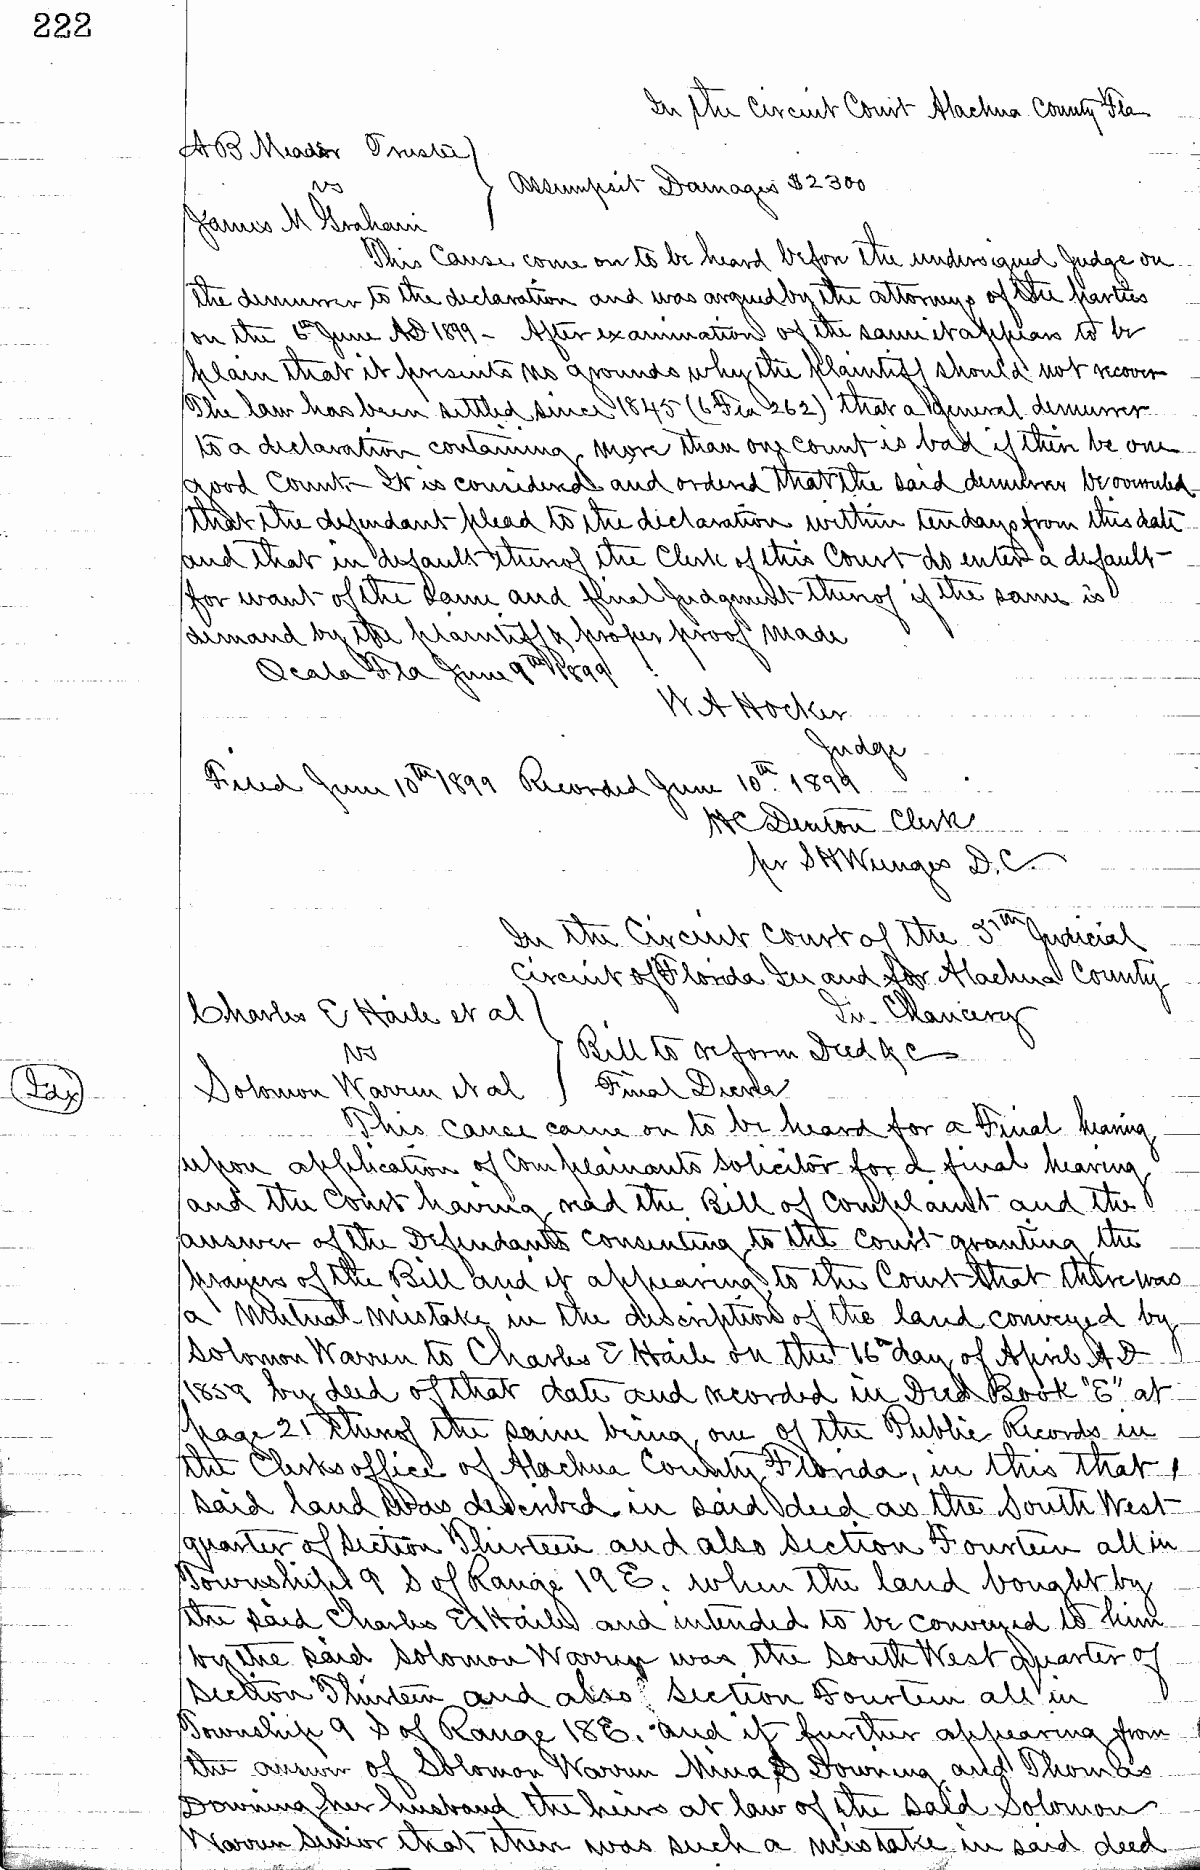 222
In the Circuit Court Alachua County Fla
A B Meador Trustee
vs
Assumpsit Damages $2300
James M Graham
This Cause come on to be heard before the undersigned Judge on
the demurrer to the declaration and was argued by the attorneys of the parties
on the 6th June AD 1899 - After examination of the same it appears to be
plain that it presents no grounds why the plaintiff should not recover
The law has been settled since 1845 (6 Fla 262) that a general demurrer
to a declaration containing more than one count is bad if there be one
good Count - It is considered and ordered that the said demurrer be overruled
that the defendant plead to the declaration within ten days from this date
and that in default thereof the Clerk of this Court do enter a default
for want of the same and final Judgment thereof if the same is
demand by the plaintiff & proper proof made
Ocala Fla June 9th 1899
W A Hocker
Judge
Filed June 10th 1899 Recorded June 10th 1899
H C Denton Clerk
pr S H Wienges D.C.
In the Circuit Court of the 5th Judicial
Circuit of Florida In and for Alachua County
Charles E Haile et al
In Chancery
vs
Bill to reform Deed &c
Idx
Solomon Warren et al
Final Decree
This cause came on to be heard for a Final hearing
upon application of Complainants Solicitor for a final hearing
and the Court having read the Bill of Complaint and the
answer of the Defendants consenting to the Court granting the
prayers of the Bill and it appearing to the Court that there was
a Mutual mistake in the description of the land conveyed by
Solomon Warren to Charles E Haile on the 16th day of April A D
1859 by deed of that date and recorded in Deed Book "E" at
page 21 thereof the same being one of the Public Records in
the Clerks office of Alachua County Florida, in this that
said land was described in said deed as the South West
quarter of Section Thirteen and also Section Fourteen all in
Township 9 S of Range 19 E. when the land bought by
the said Charles E Haile and intended to be conveyed to him
by the said Solomon Warren was the South West quarter of
Section Thirteen and also Section Fourteen all in
Township 9 S of Range 18 E. and it further appearing from
the answer of Solomon Warren Mina S Downing and Thomas
Downing her husband the heirs at law of the said Solomon
Warren Senior that there was such a mistake in said deed